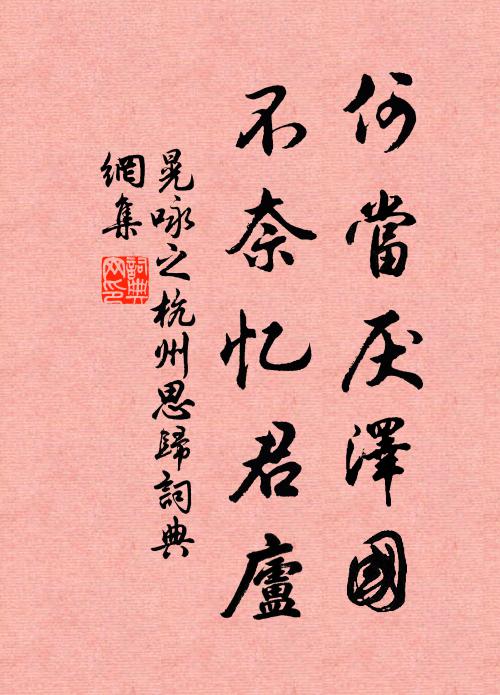 何當厌澤國
不奈忆君廬
晃咏之杭州思歸詞典
網集
詞典網印